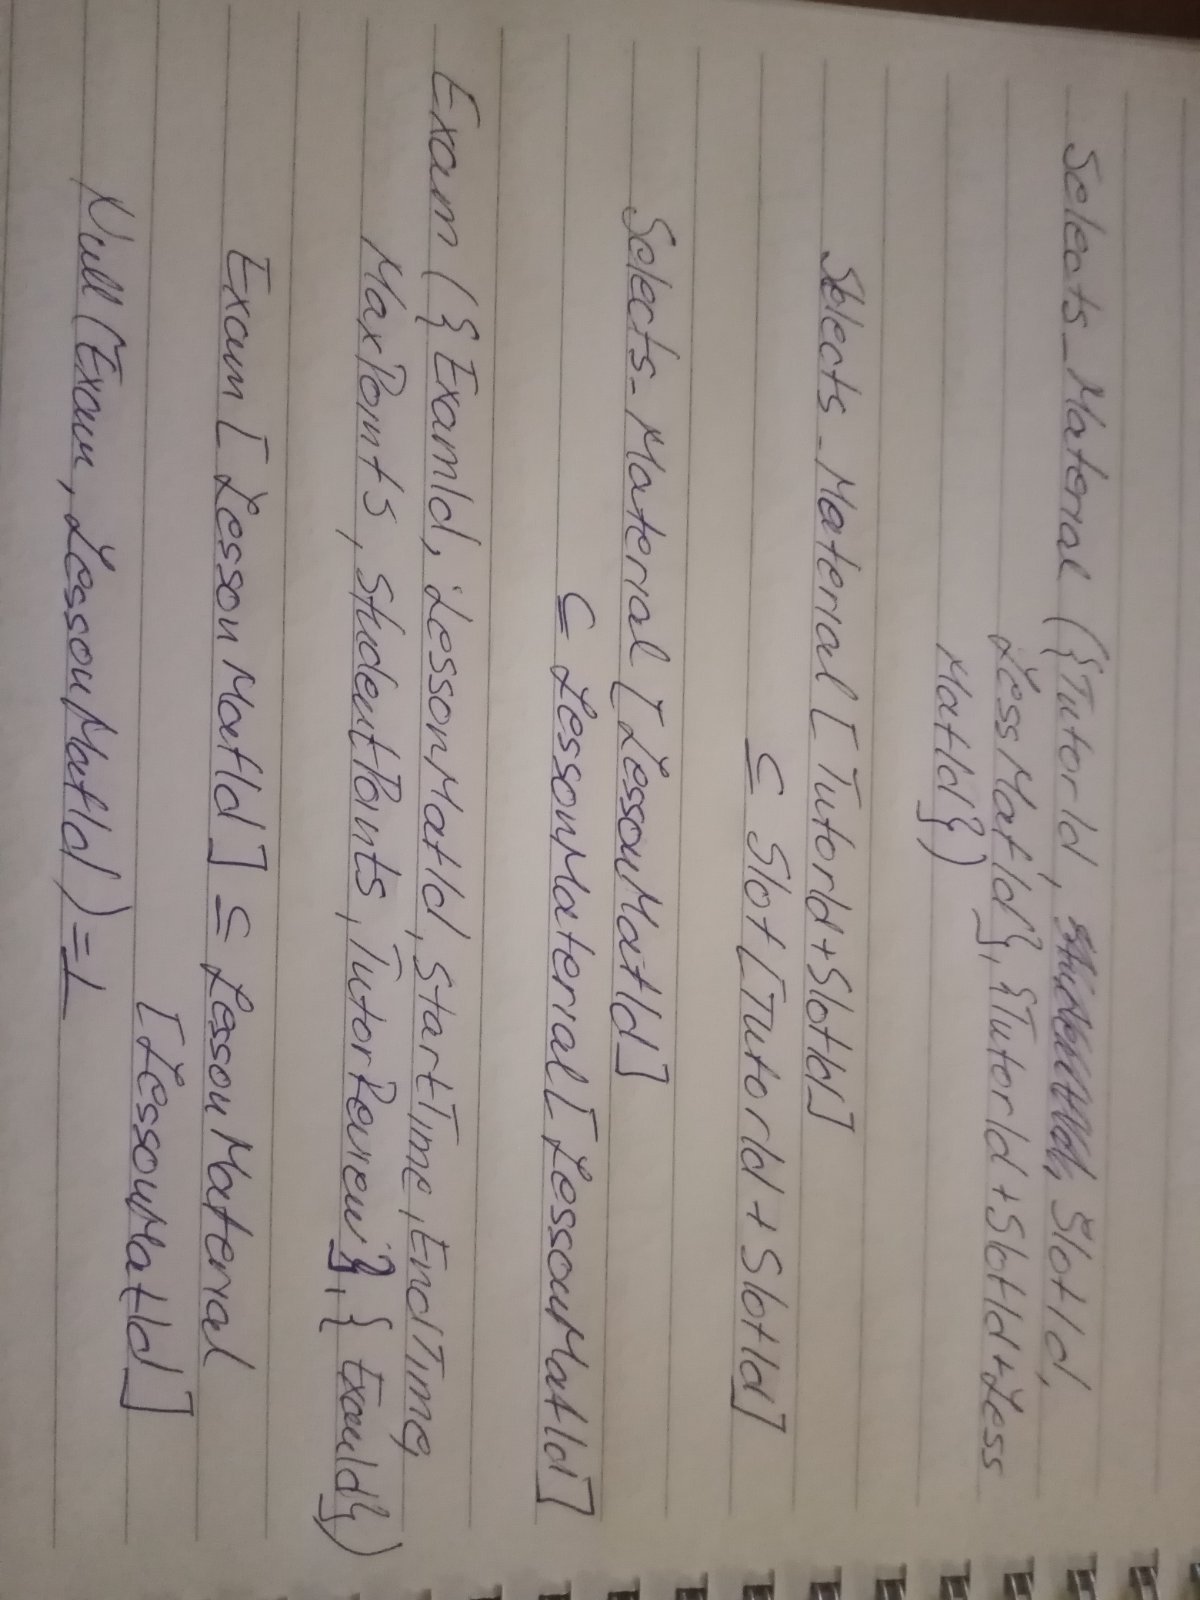 Selects_Material ({TutorId, SlotId,
LessMatId}, {TutorId+SlotId+Less
MatId})
Selects_Material [TutorId+SlotId]
⊆ Slot [TutorId+SlotId]
Selects_Material [LessonMatId]
⊆ LessonMaterial [LessonMatId]
Exam ({ExamId, LessonMatId, StartTime, EndTime,
MaxPoints, StudentPoints, TutorReview}, {ExamId})
Exam [LessonMatId] ⊆ LessonMaterial
[LessonMatId]
Null (Exam, LessonMatId) = ⊥